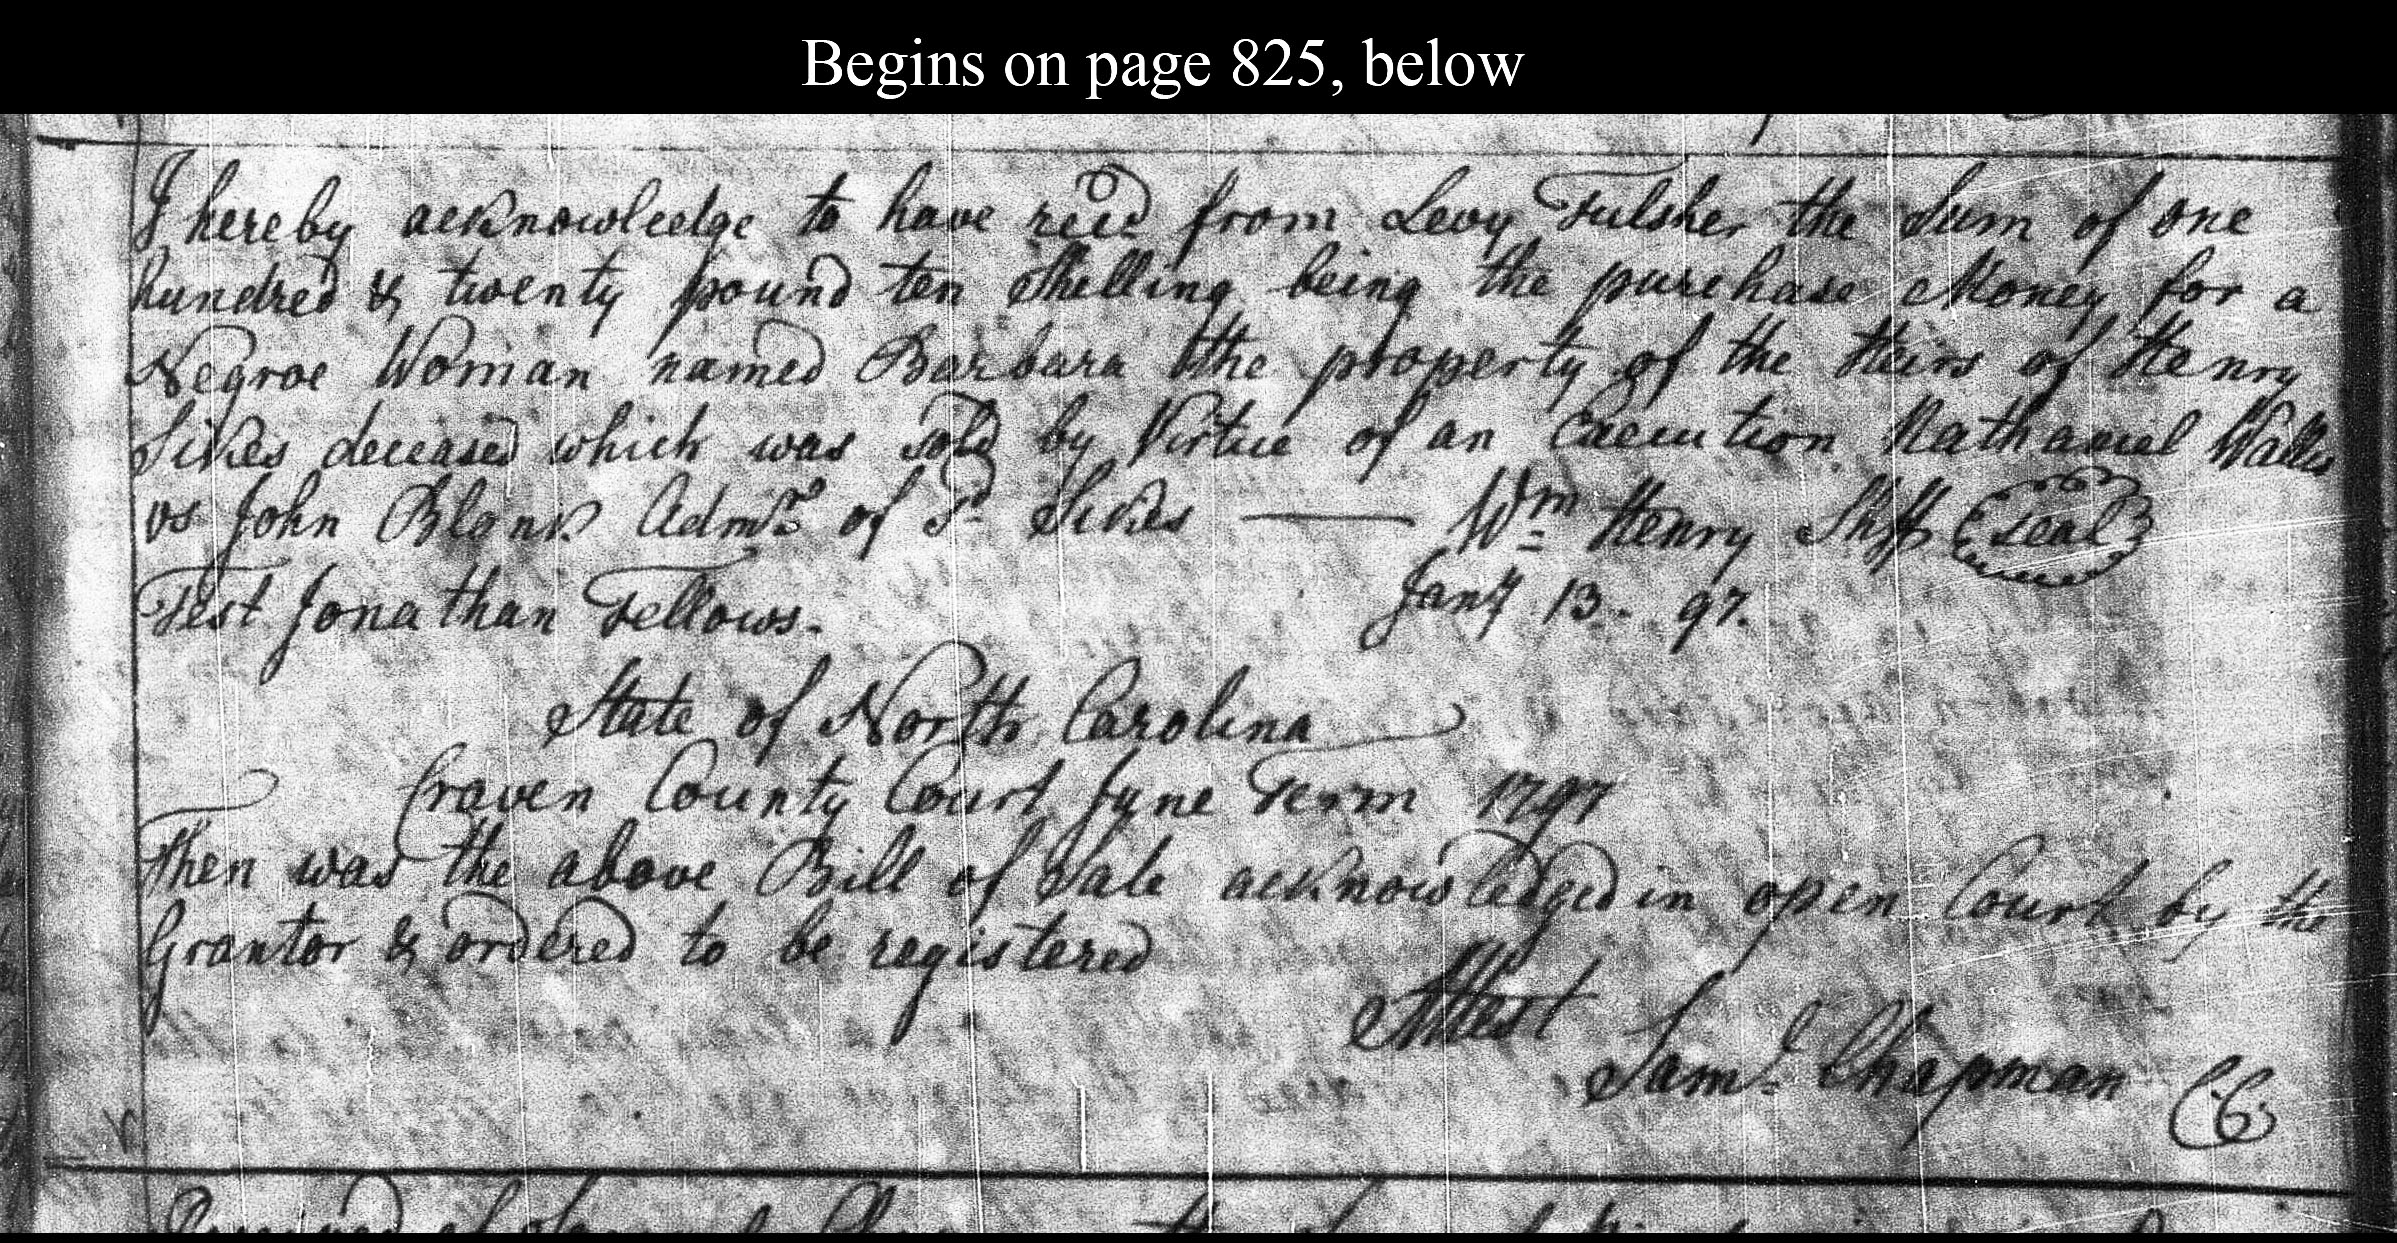 Begins on page 825, below
I hereby acknowledge to have recd from Levy Fulsher the Sum of one
hundred & twenty pound ten Shelling being the purchase Money for a
Negroe Woman named Barbara the property of the Heirs of Henry
Sikes deceased which was sold by Virtue of an Execution Nathaniel Wallis
vs John Blanks Admr. of Sd Sikes — Wm Henry Shff seal
Test Jonathan Fellows. Jany 13 - 97.
State of North Carolina
Craven County Court June Term 1797
Then was the above Bill of Sale acknowledged in open Court by the
Grantor & ordered to be registered
Attest
Saml. Chapman CC